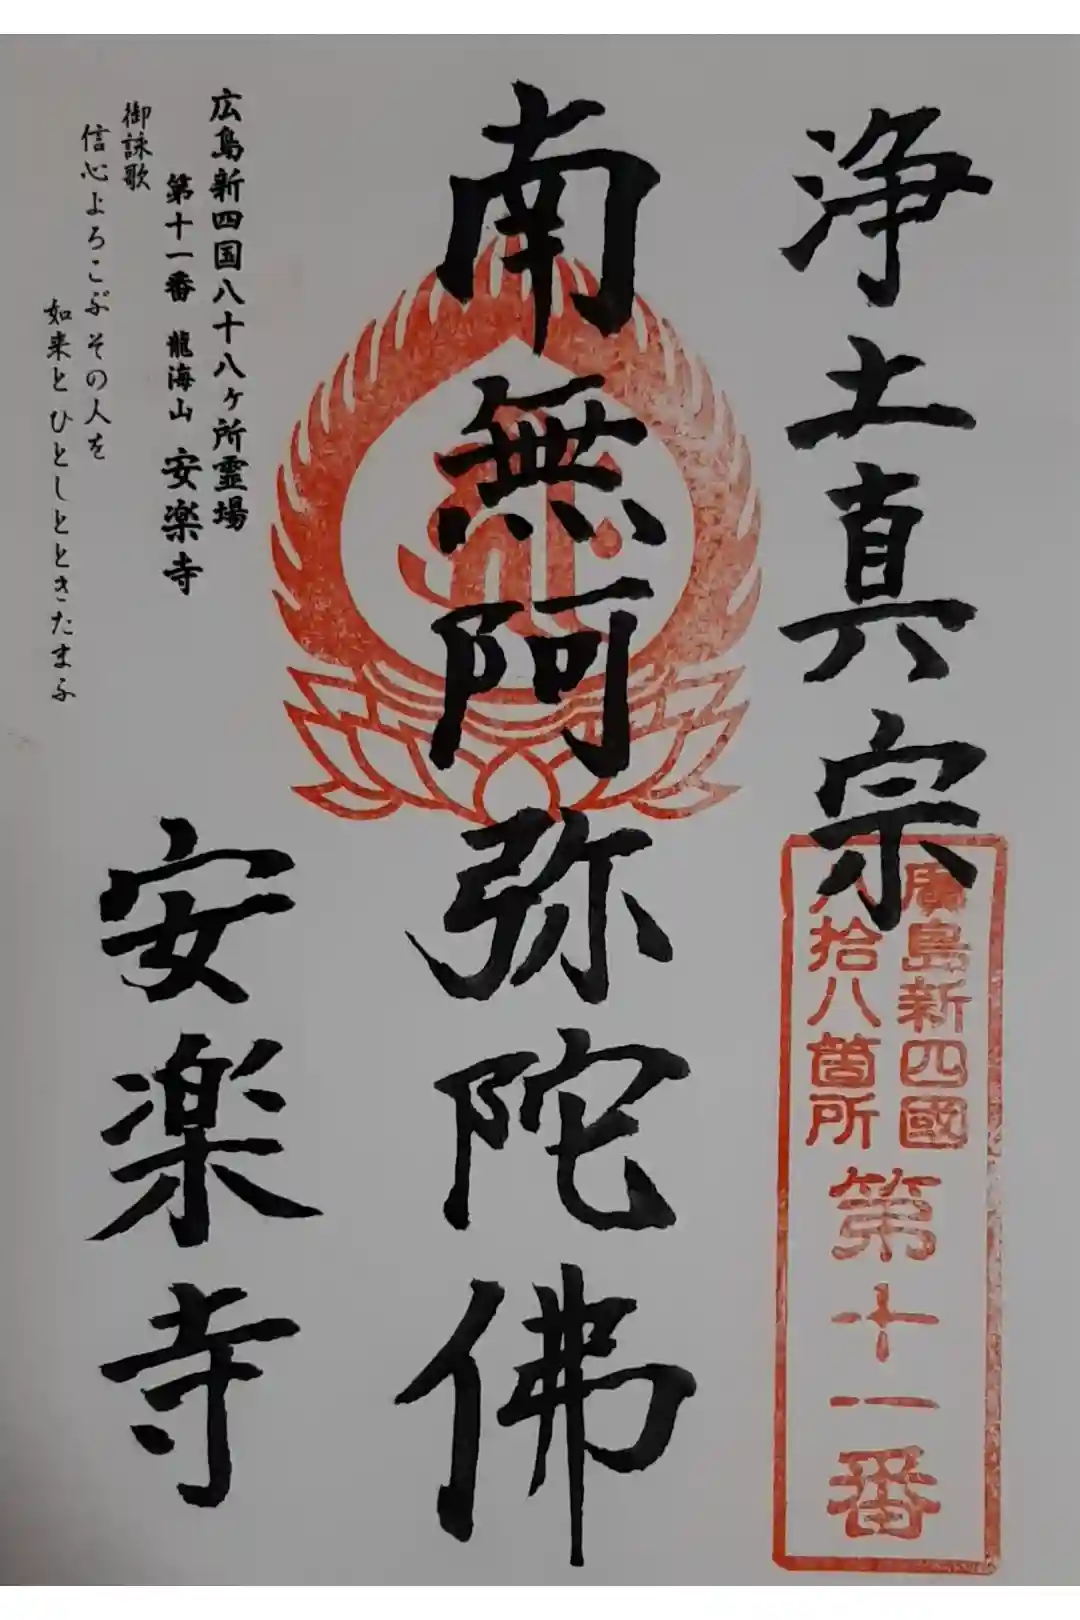 浄土真宗
廣島新四國
八拾八箇所
第十一番
南無阿弥陀佛
広島新四国八十八ヶ所霊場
第十一番 龍海山 安楽寺
御詠歌
信心よろこぶその人を
如来とひとしとときたまふ
安楽寺